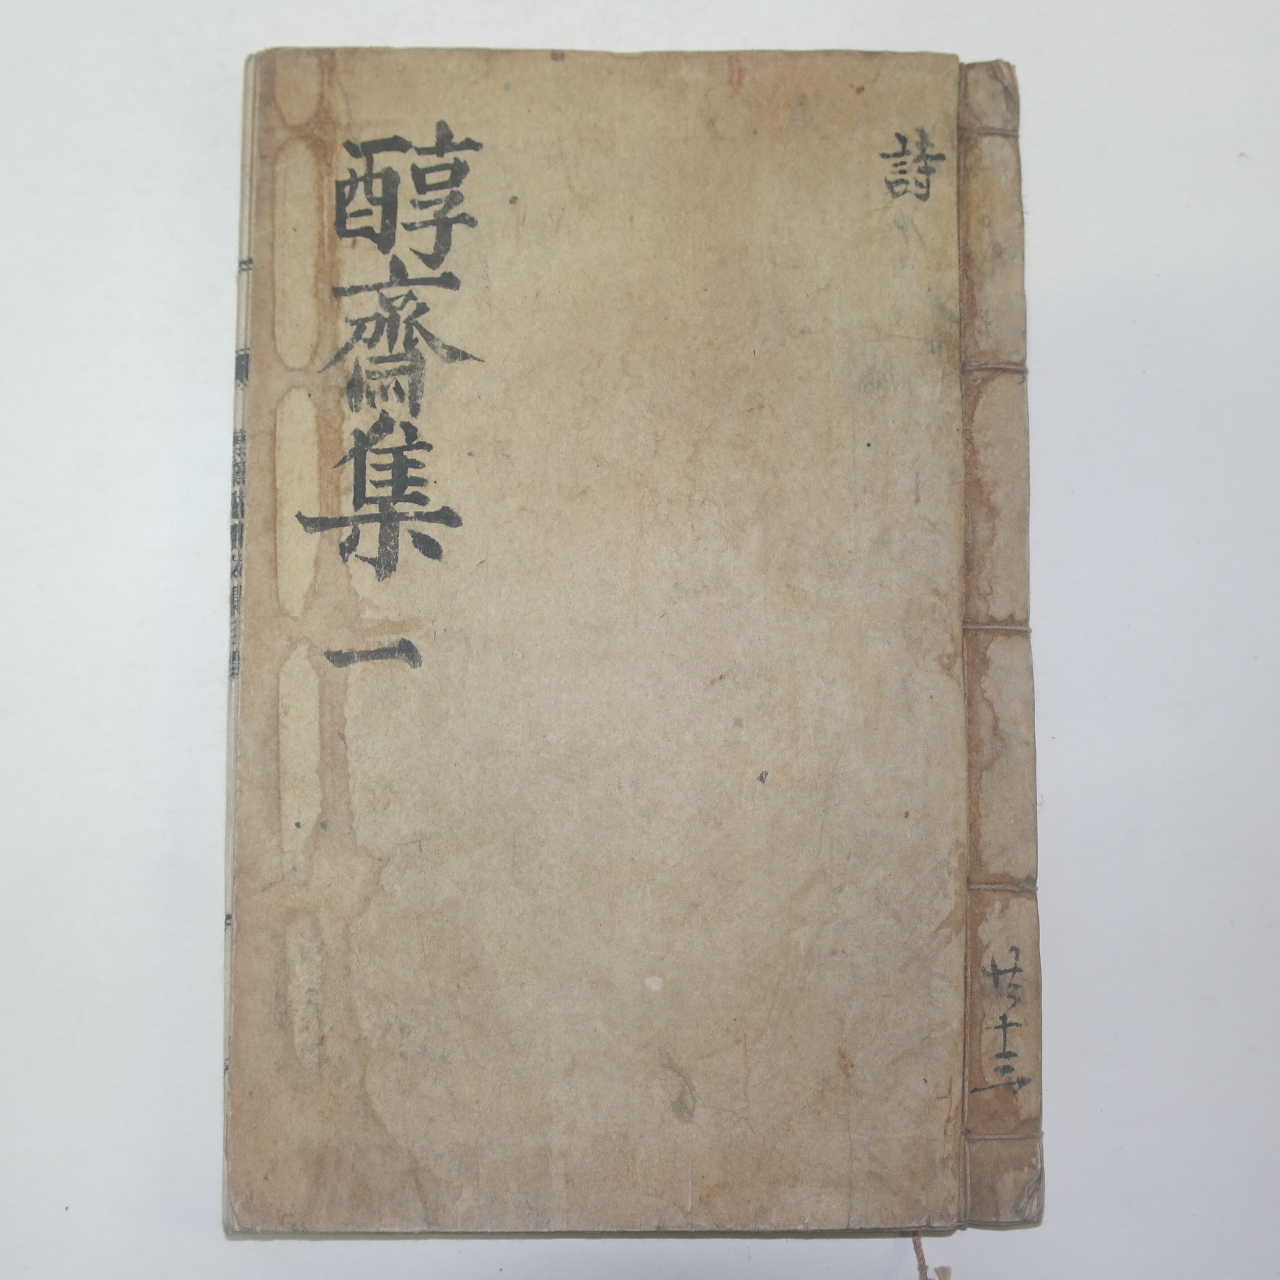 詩
醇齋集 一
共十三